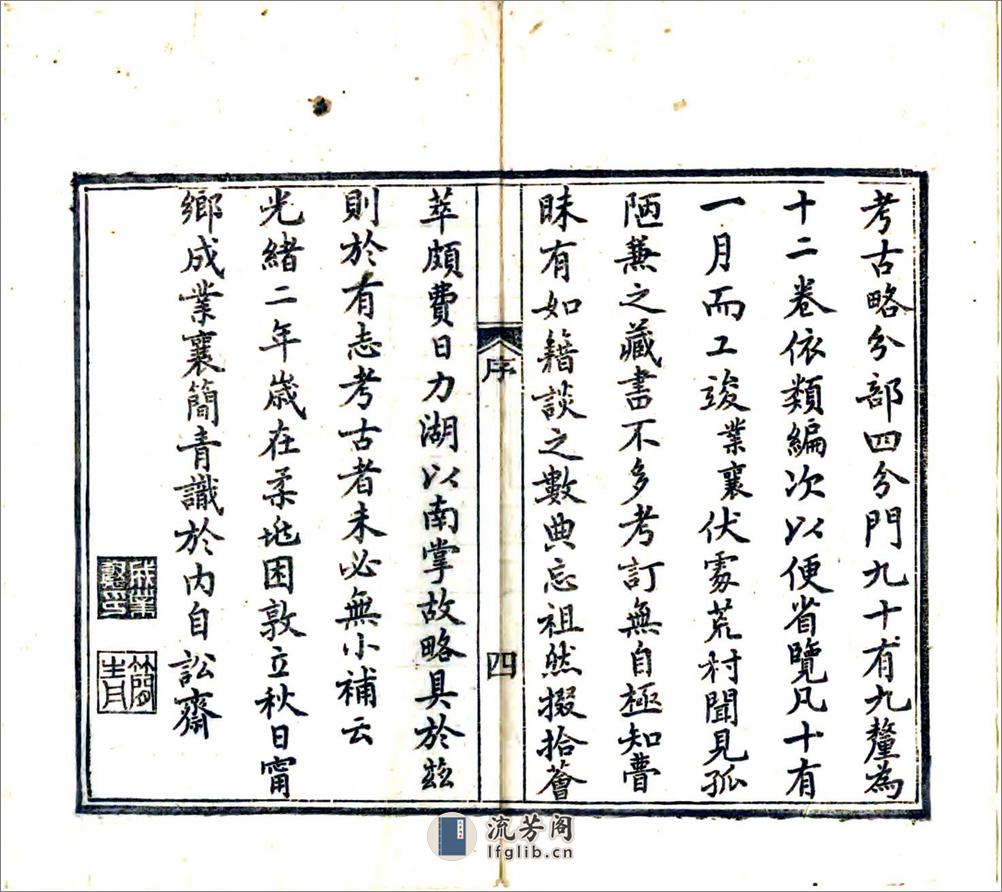 考古略分部四分門九十有九釐為
十二卷依類編次以便省覽凡十有
一月而工竣業襄伏處荒村聞見孤
陋兼之藏書不多考訂無自極知瞢
昧有如籍談之數典忘祖然掇拾薈
序
四
萃頗費日力湖以南掌故略具於茲
則於有志考古者未必無小補云
光緒二年歲在柔兆困敦立秋日甯
鄉成業襄簡青識於內自訟齋
成業襄印
簡青
流芳阁
lfglib.cn